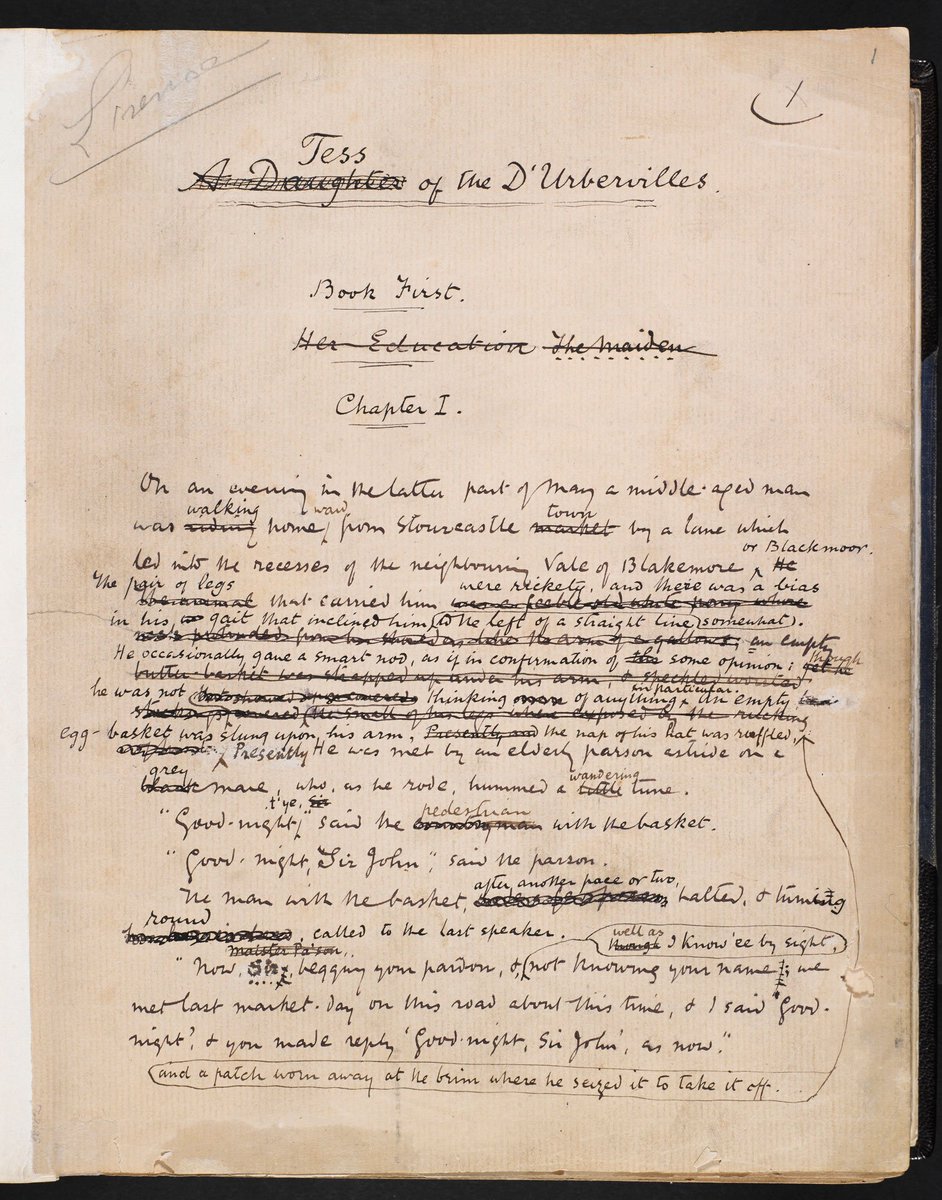 1
1
Tess
A Daughter of the D'Urbervilles.
Book First.
Her Education The Maiden
Chapter I.
On an evening in the latter part of May a middle-aged man
walking ward town
was riding home from Stourcastle market by a lane which
or Blackmoor.
led into the recesses of the neighbouring Vale of Blakemore He
The pair of legs were rickety, and there was a bias
the animal that carried him was a feeble old white pony whose
in his gait that inclined him to the left of a straight line somewhat).
an empty
He occasionally gave a smart nod, as if in confirmation of some opinion; though
butter-basket was strapped up under his arm, & speckled worsted
he was not thinking of anything in particular. An empty
the small of his legs where exposed by the rucking
egg-basket was slung upon his arm; Presently and the nap of his hat was ruffled;
Presently He was met by an elderly parson astride on a
grey wandering
black mare, who, as he rode, hummed a little tune.
t'ye, Sir pedestrian
"Good-night," said the countryman with the basket.
"Good-night, Sir John," said the parson.
after another pace or two,
The man with the basket, halted, & turning
round
, called to the last speaker. well as
though I know'ee by sight,
maister Pa'son,
"Now, Sir, begging your pardon, & not knowing your name; we
met last market-day on this road about this time, & I said 'Good-
night', & you made reply 'Good-night, Sir John', as now."
and a patch worn away at the brim where he seized it to take it off.